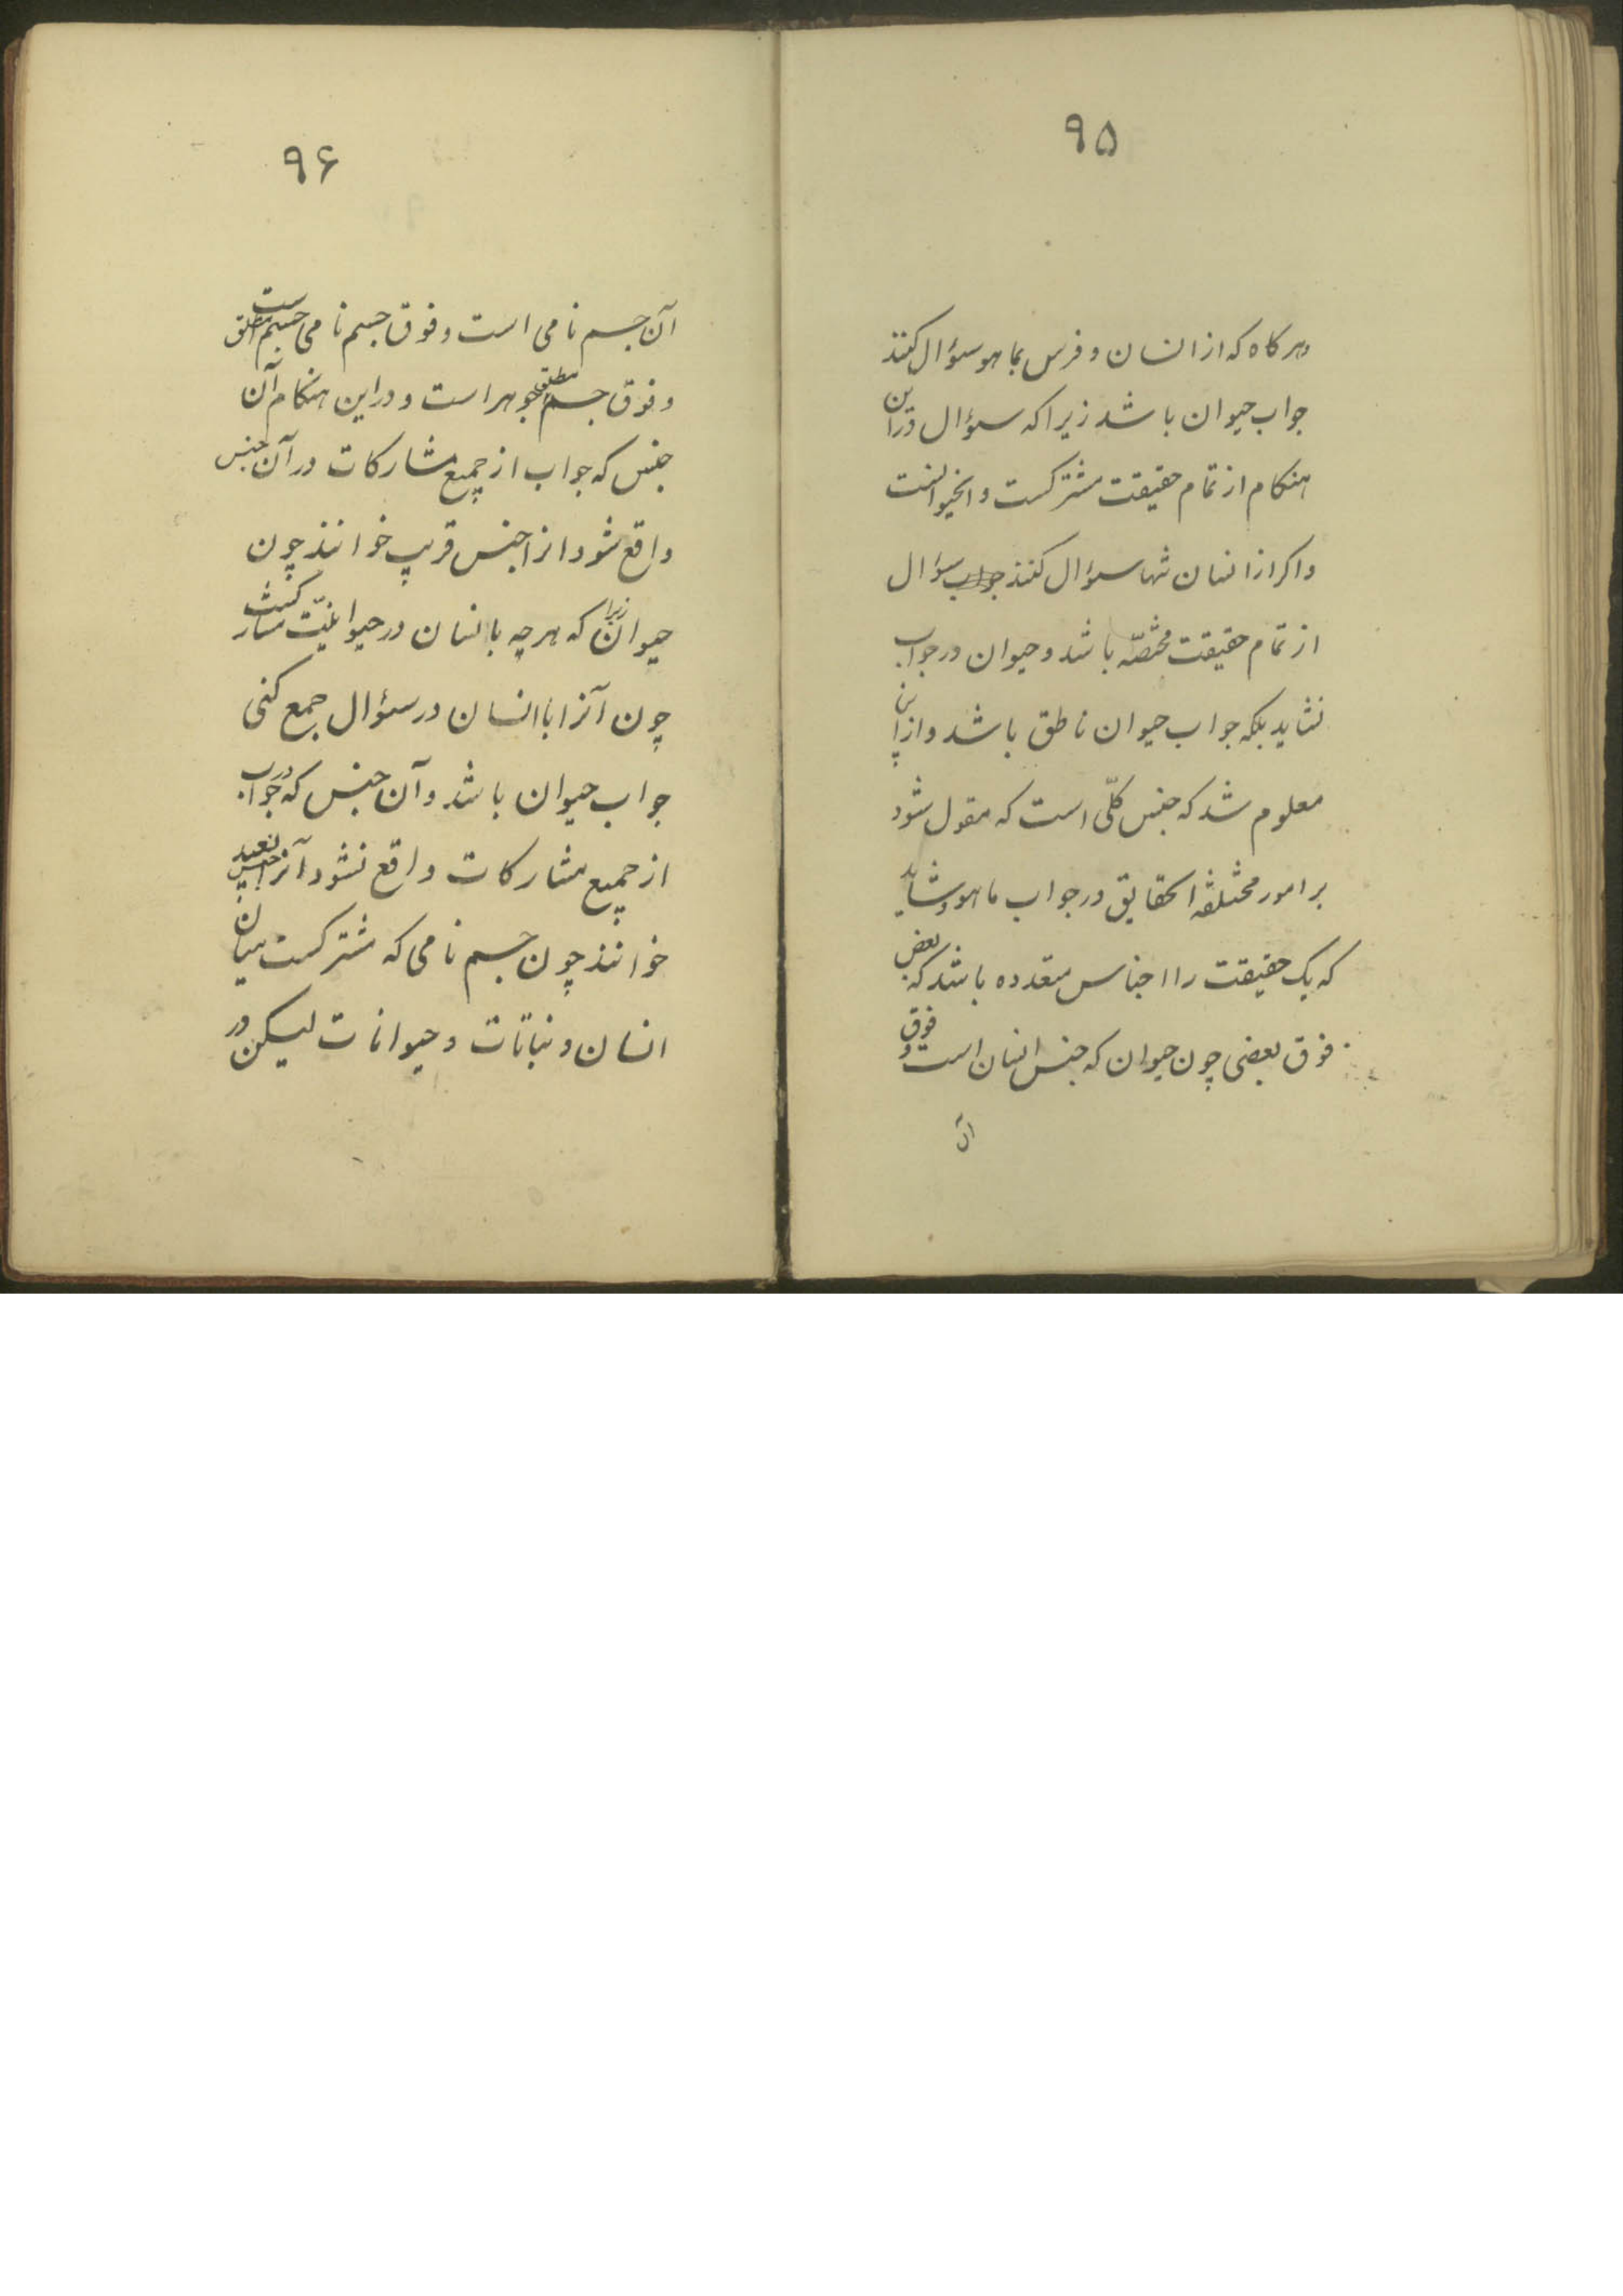 ۹۵
وهرکاه که از انسان و فرس بما هو سؤال کنند
جواب حیوان باشد زیرا که سؤال دراین
هنکام از تمام حقیقت مشترکست و
واکر از انسان تنها سؤال کنند سؤال
از تمام حقیقت مختصّه باشد و حیوان در جواب
نشاید بلکه جواب حیوان ناطق باشد و از این
معلوم شد که جنس کلّی است که مقول شود
بر امور مختلفة الحقایق در جواب ما هو و شاید
که یک حقیقت را اجناس متعدده باشد که بعض
فوق بعضی چون حیوان که جنس انسان است و فوق
آن
۹۶
آن جسم نامی است و فوق جسم نامی جسم مطلق است
و فوق جسم مطلق جوهر است و در این هنکام آن
جنس که جواب از جمیع مشارکات در آن جنس
واقع شود انرا جنس قریب خوانند چون
حیوان زیرا که هرچه با انسان در حیوانیّت مشارکست
چون آنرا با انسان در سؤال جمع کنی
جواب حیوان باشد و آن جنس که در جواب
از جمیع مشارکات واقع نشود آنرا جنس بعید
خوانند چون جسم نامی که مشترکست میان
انسان و نباتات و حیوانات لیکن در